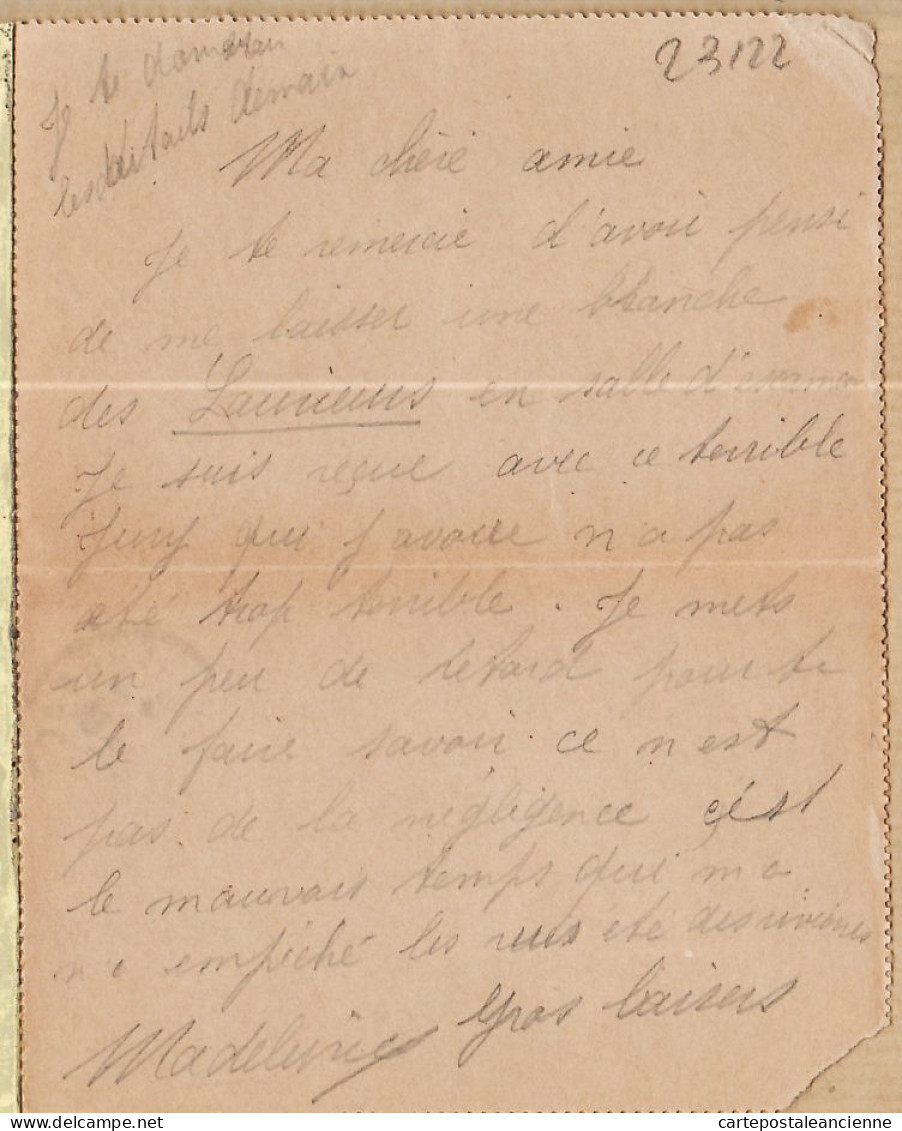 23122
Je te
les détails demain
Ma chère amie
Je te remercie d'avoir pensé
de me laisser une branche
des Lauriers en salle d'examen
Je suis reçue avec ce terrible
Jury qui j avoue n a pas
été trop terrible. Je mets
un peu de retard pour te
le faire savoir ce n est
pas de la négligence c'est
le mauvais temps qui m a
empêché les rues été des rivières
Gros baisers
Madeleine
cartepostaleancienne